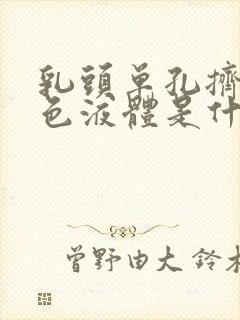 乳頭单孔擠
色液體是什
曾野由大 鈴木